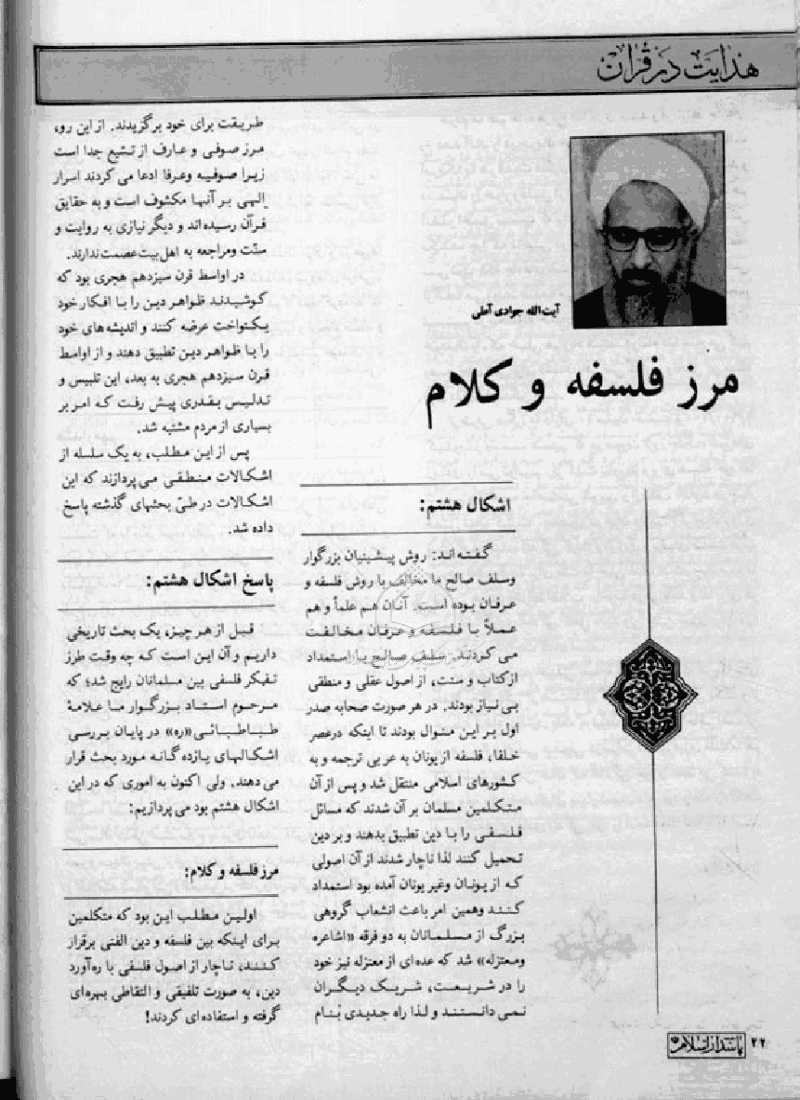 هدایت در قرآن
آیت الله جوادی آملی
مرز فلسفه و کلام
اشکال هشتم:
گفته اند: روش پیشینیان بزرگوار
وسلف صالح ما مخالف با روش فلسفه و
عرفان بوده است. آنان هم علماً و هم
عملاً با فلسفه و عرفان مخالفت
می کردند. سلف صالح با استمداد
از کتاب و سنت، از اصول عقلی و منطقی
بی نیاز بودند. در هر صورت صحابه صدر
اول بر این منوال بودند تا اینکه درعصر
خلفا، فلسفه از یونان به عربی ترجمه و به
کشورهای اسلامی منتقل شد و پس از آن
متکلمین مسلمان بر آن شدند که مسائل
فلسفی را با دین تطبیق بدهند و بر دین
تحمیل کنند لذا ناچار شدند از آن اصولی
که از یونان وغیر یونان آمده بود استمداد
کنند وهمین امر باعث انشعاب گروهی
بزرگ از مسلمانان به دو فرقه «اشاعره
ومعتزله» شد که عده ای از معتزله نیز خود
را در شریعت، شریک دیگران
نمی دانستند و لذا راه جدیدی بنام
طریقت برای خود برگزیدند. از این رو،
مرز صوفی و عارف از تشیع جدا است
زیرا صوفیه وعرفا ادعا می کردند اسرار
الهی بر آنها مکشوف است و به حقایق
قرآن رسیده اند و دیگر نیازی به روایت و
سنّت ومراجعه به اهل بیت عصمت ندارند.
در اواسط قرن سیزدهم هجری بود که
کوشیدند ظواهر دین را با افکار خود
یکنواخت عرضه کنند و اندیشه های خود
را با ظواهر دین تطبیق دهند و از اواسط
قرن سیزدهم هجری به بعد، این تلبیس و
تدلیس بقدری پیش رفت که امر بر
بسیاری از مردم مشتبه شد.
پس از این مطلب، به یک سلسله از
اشکالات منطقی می پردازند که این
اشکالات در طیّ بحثهای گذشته پاسخ
داده شد.
پاسخ اشکال هشتم:
قبل از هر چیز، یک بحث تاریخی
داریم و آن این است که چه وقت طرز
تفکر فلسفی بین مسلمانان رایج شد؛ که
مرحوم استاد بزرگوار ما علامۀ
طباطبائی «ره» در پایان بررسی
اشکالهای یازده گانه مورد بحث قرار
می دهند. ولی اکنون به اموری که در این
اشکال هشتم بود می پردازیم:
مرز فلسفه و کلام:
اولین مطلب این بود که متکلمین
برای اینکه بین فلسفه و دین الفتی برقرار
کنند، ناچار از اصول فلسفی با ره آورد
دین، به صورت تلفیقی و التقاطی بهره ای
گرفته و استفاده ای کردند!
۲۲ پاسدار اسلام